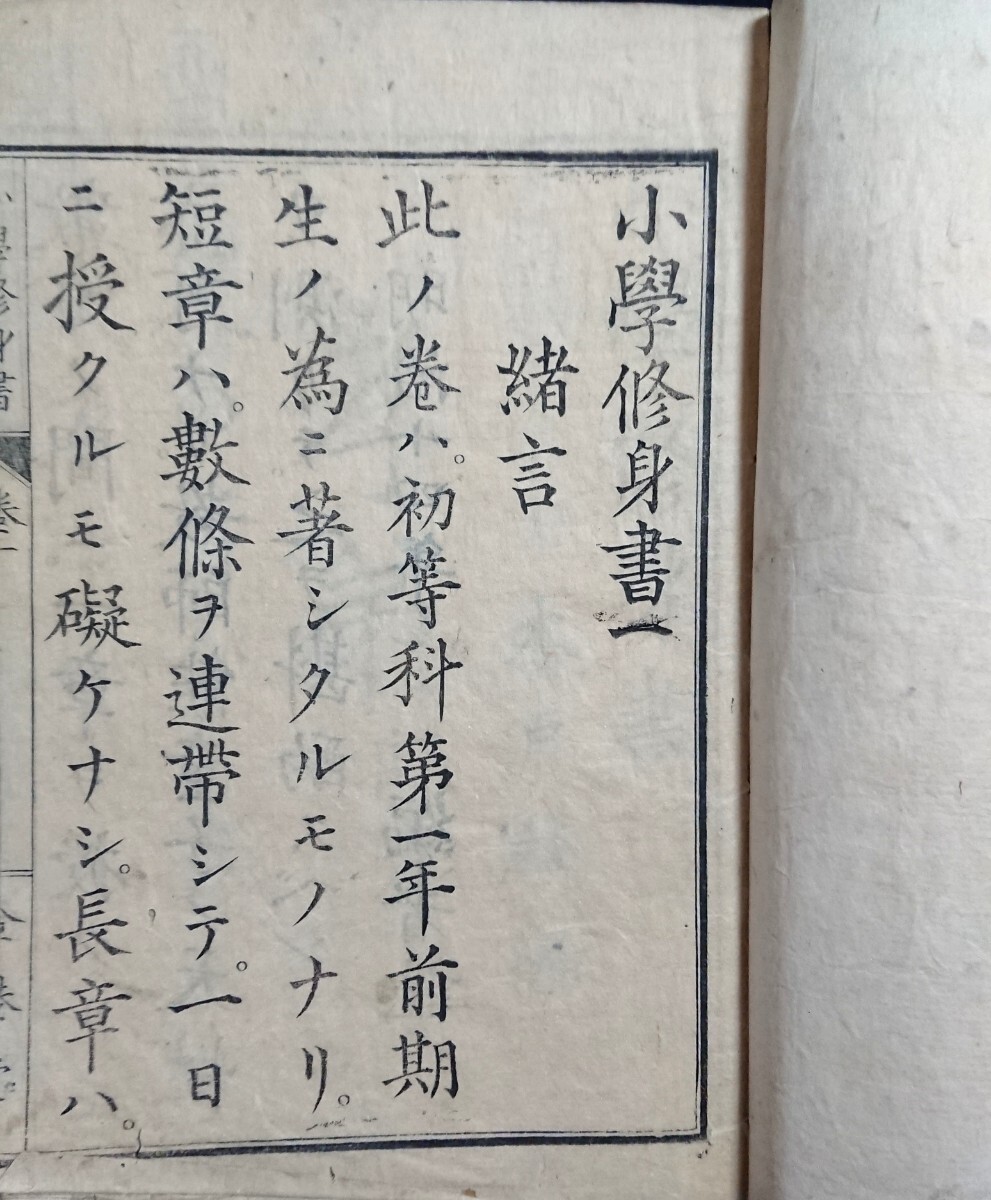 小學修身書一
緒言
此ノ卷ハ。初等科第一年前期
生ノ為ニ著シタルモノナリ。
短章ハ。數條ヲ連帶シテ。一日
ニ授クルモ礙ケナシ。長章ハ。
小學修身書